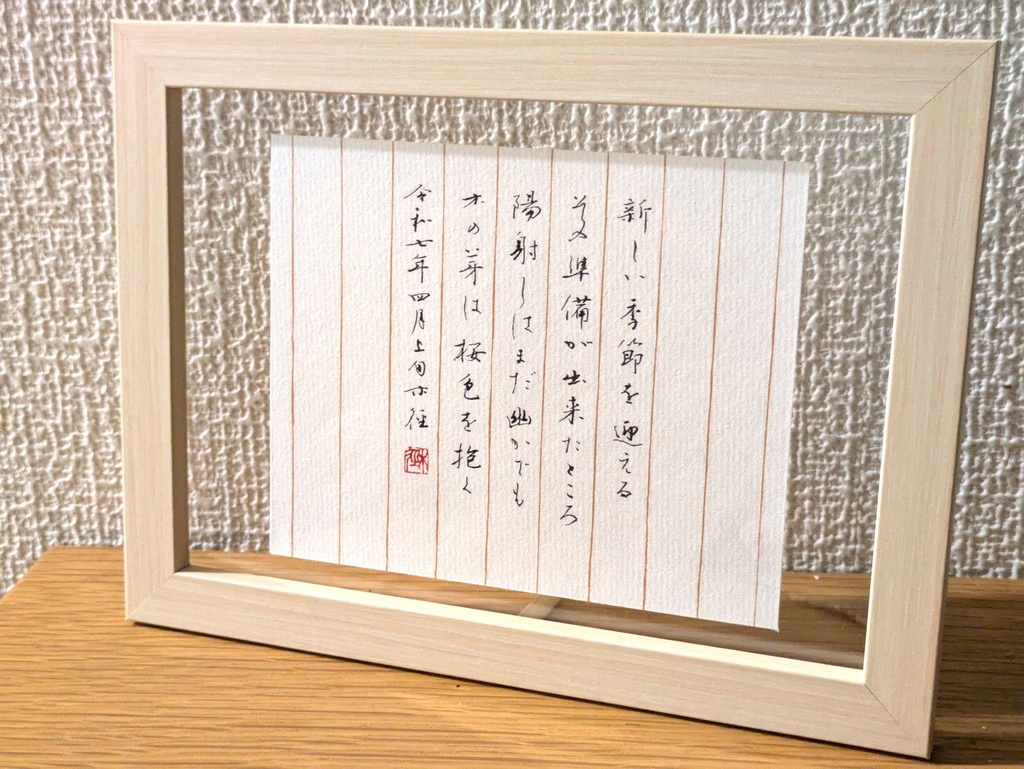 新しい季節を迎える
その準備が出来たところ
陽射しはまだ幽かでも
木の芽は桜色を抱く
令和七年四月上旬